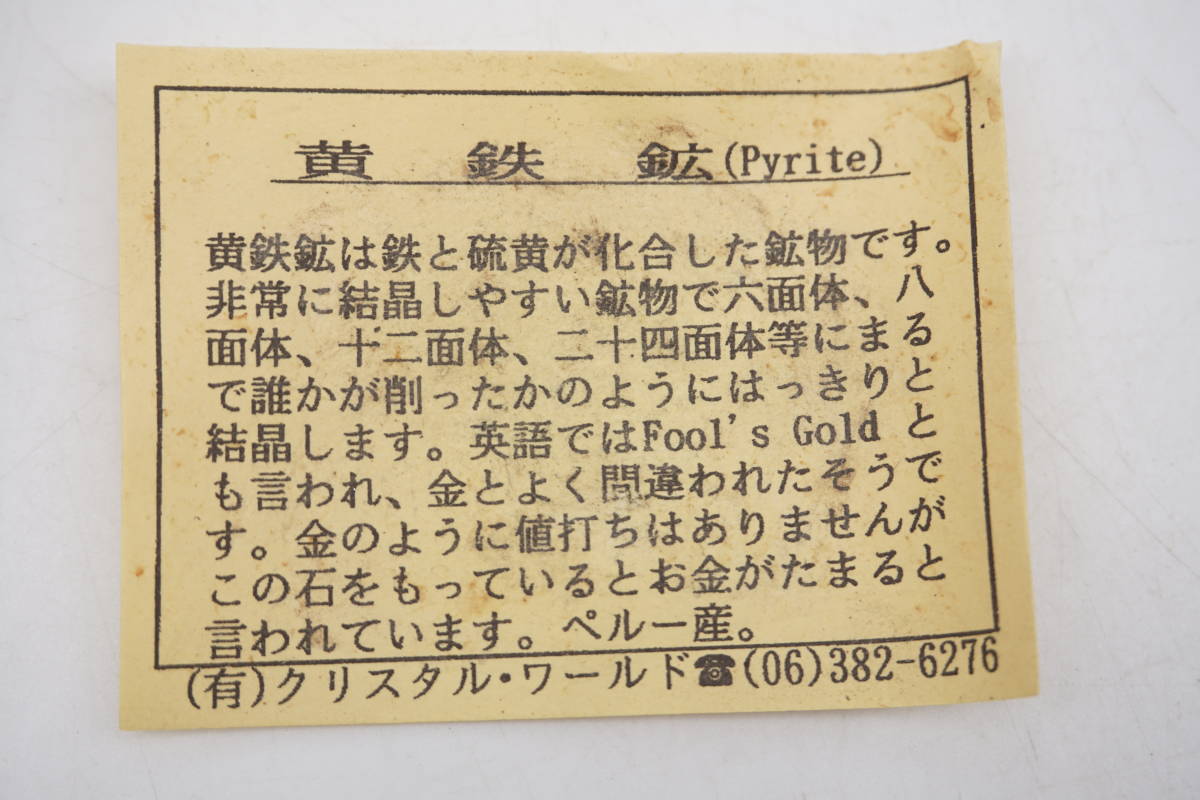 黄鉄鉱(Pyrite)
黄鉄鉱は鉄と硫黄が化合した鉱物です。
非常に結晶しやすい鉱物で六面体、八
面体、十二面体、二十四面体等にまる
で誰かが削ったかのようにはっきりと
結晶します。英語ではFool's Goldと
も言われ、金とよく間違われたそうで
す。金のように値打ちはありませんが
この石をもっているとお金がたまると
言われています。ペルー産。
(有)クリスタル・ワールド☎(06)382-6276